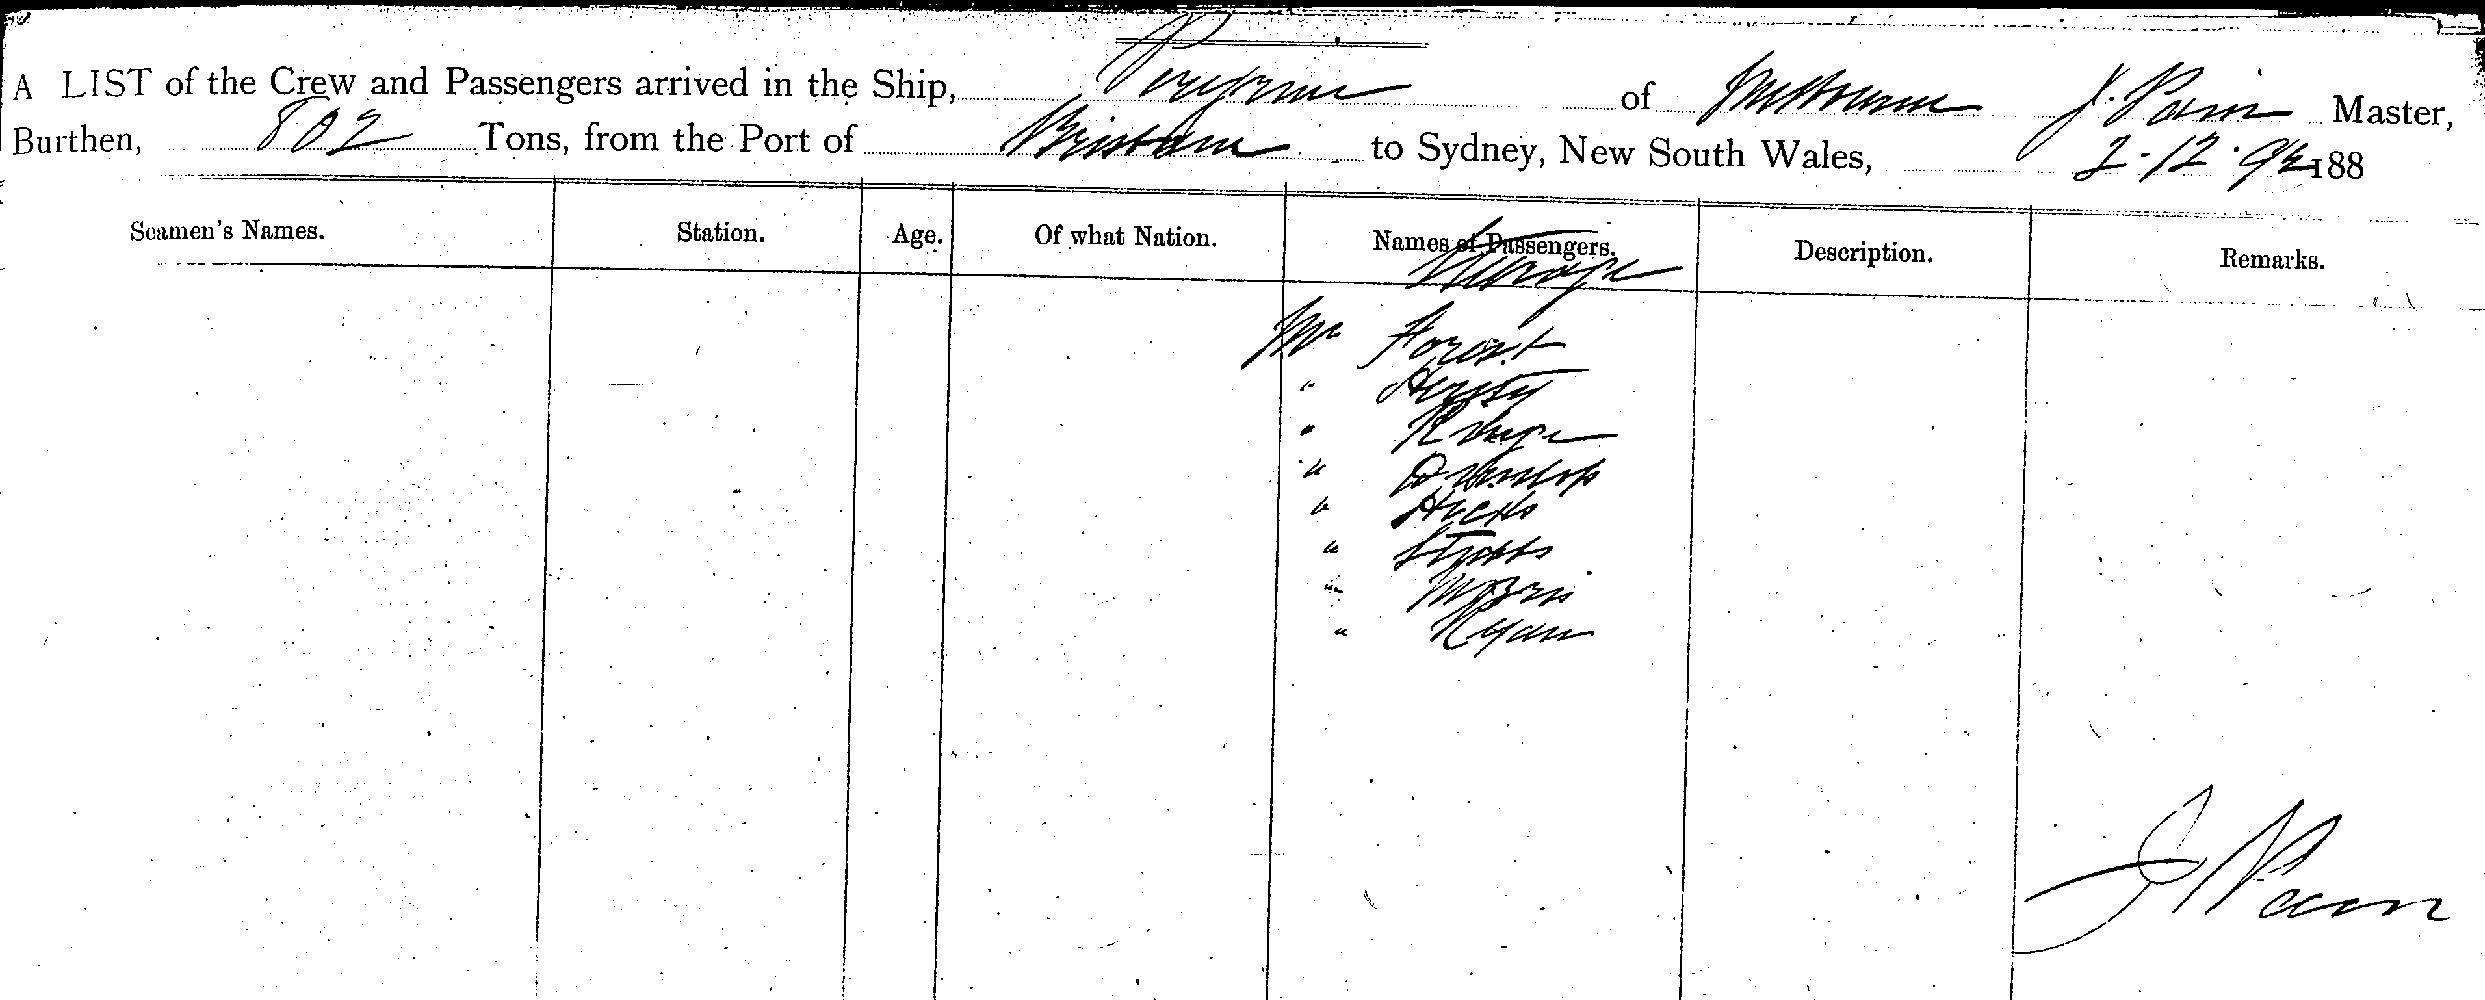 A LIST of the Crew and Passengers arrived in the Ship, Peregrine of Melbourne J. Pain Master,
Burthen, 802 Tons, from the Port of Brisbane to Sydney, New South Wales, 2-12-92 188
Seamen's Names. Station. Age. Of what Nation. Names of Passengers. Description. Remarks.
Steerage
Mr Forest
" 
" 
" Dunlop
" Hicks
" Stotts
" Morris
" Ryan
J Pain